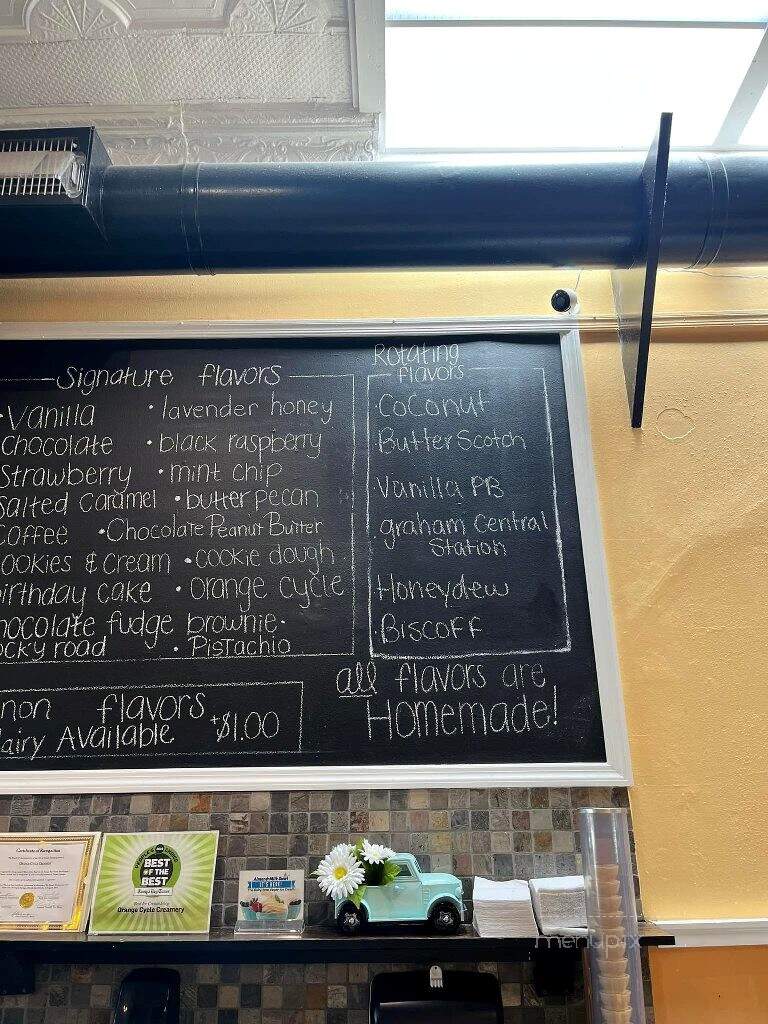 Signature flavors
• Vanilla
Chocolate
Strawberry
Salted Caramel
Coffee
ookies & cream
irthday cake
hocolate fudge brownie •
ocky road
• lavender honey
• black raspberry
• mint chip
• butter pecan
• Chocolate Peanut Butter
• cookie dough
• orange cycle
• Pistachio
Rotating
flavors
• Coconut
• ButterScotch
• Vanilla PB
• graham Central
Station
• Honeydew
• Biscoff
all flavors are
Homemade!
non flavors
airy Available +$1.00
Certificate of Recognition
BEST
OF THE
BEST
Orange Cycle Creamery
Almond Milk Base!
IT'S HERE!
menupix